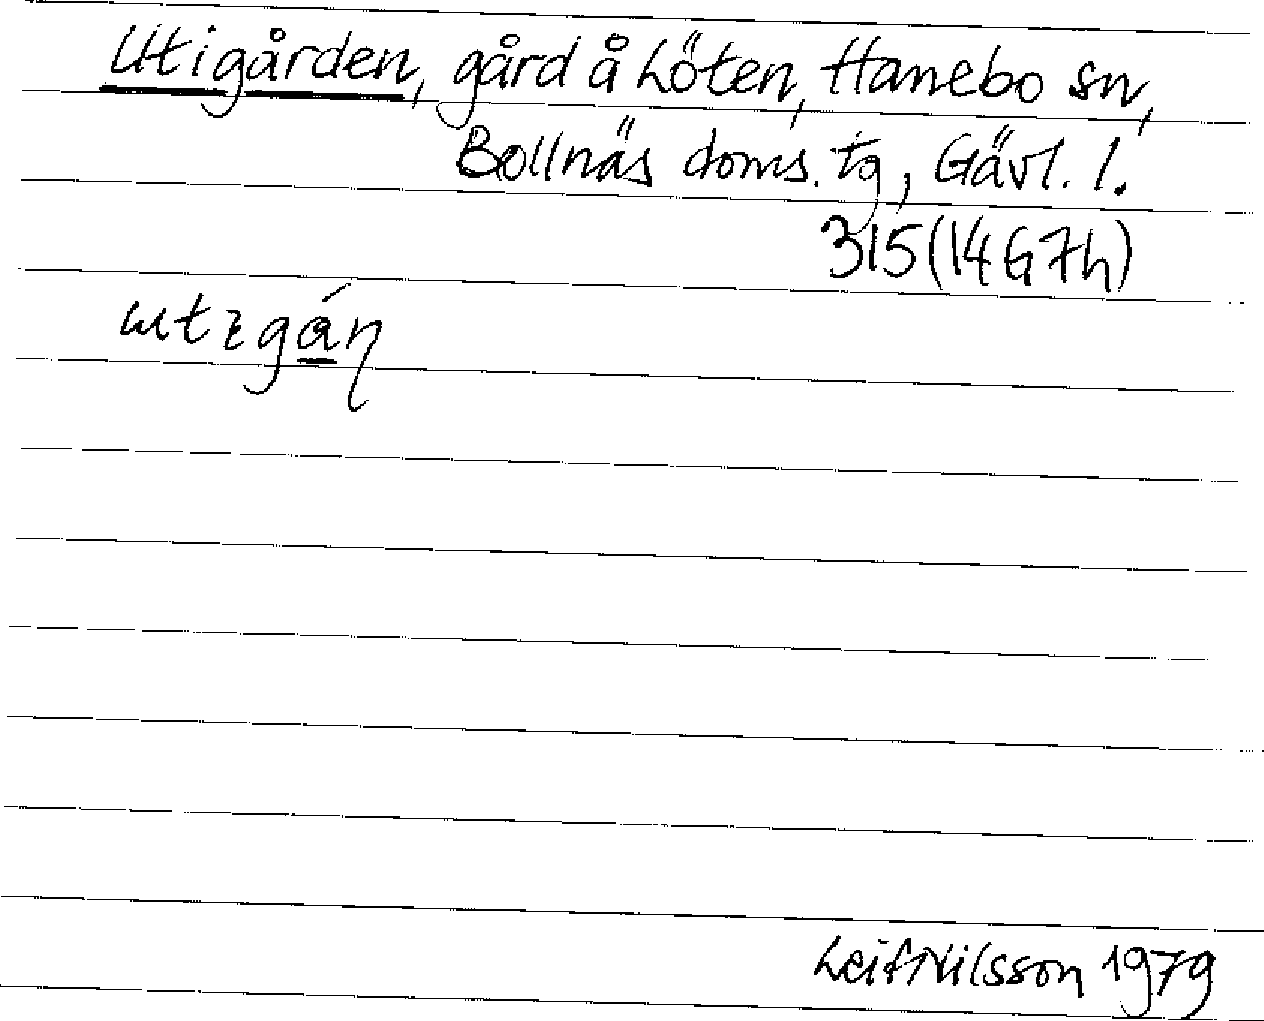 Utigården, gård å Löten, Hanebo sn,
Bollnäs doms. tg, Gävl. l.
315 (14G7h)
Leif Nilsson 1979